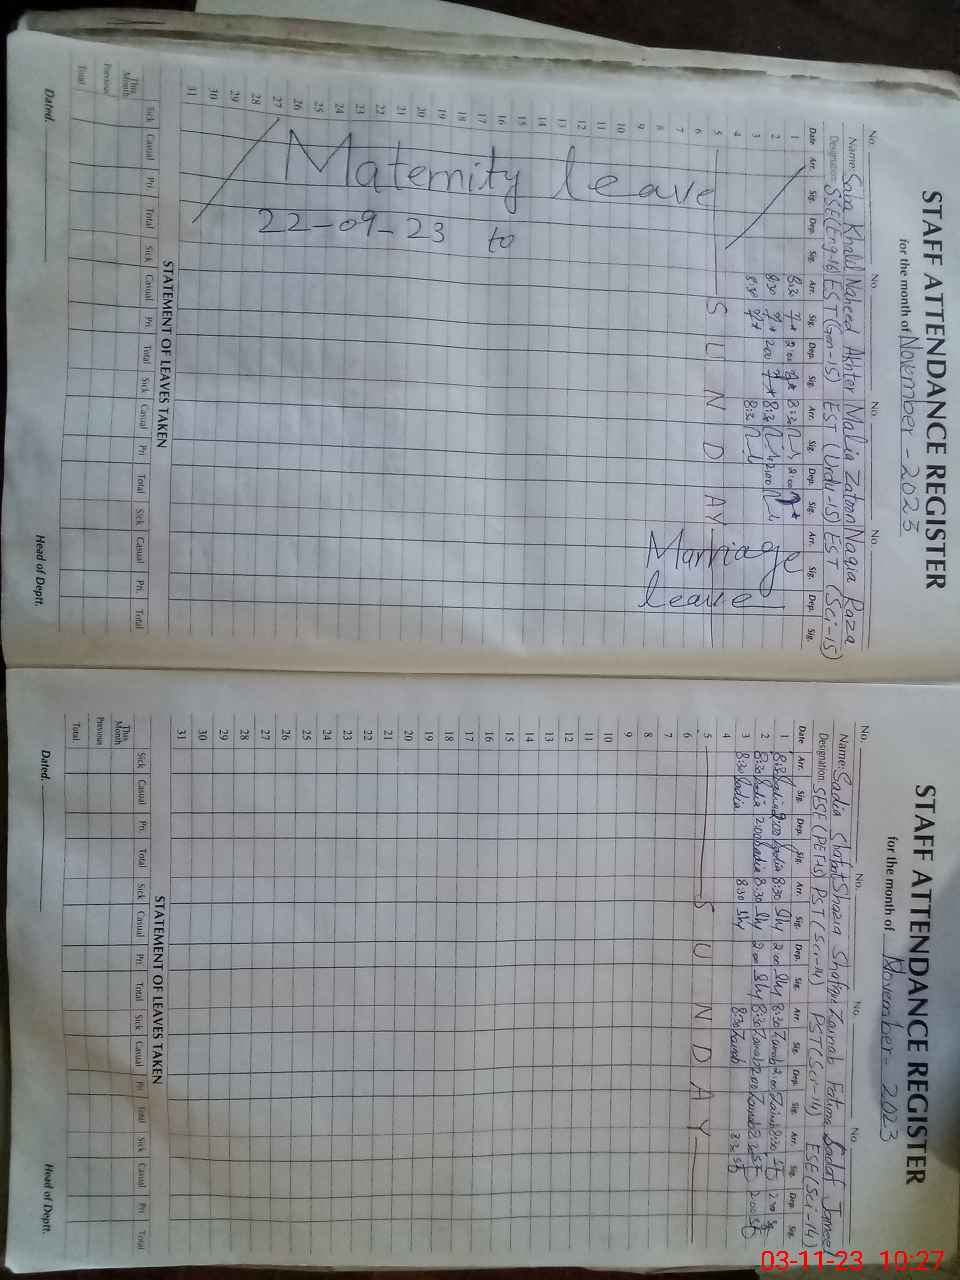 STAFF ATTENDANCE REGISTER
for the month of November - 2023
No. No. No. No.
Name: Saira Khalil Naheed Akhter Malia Zatoon Naqia Raza
Designation: SSE(Eng-16) EST(Gen-15) EST (Urdu-15) EST (Sci-15)
Date Arr. Sig. Dep. Sig. Arr. Sig. Dep. Sig. Arr. Sig. Dep. Sig. Arr. Sig. Dep. Sig.
1 8:30 2:00 8:30 2:00
2 8:30 2:00 8:30 2:00
3 8:30 8:30
4
5 S U N D AY
6
7
8
9
10
11
12
13
14
15
16
17
18
19
20
21
22
23
24
25
26
27
28
29
30
31
Maternity leave
22-09-23 to
Marriage
leave
STATEMENT OF LEAVES TAKEN
Sick Casual Pri. Total Sick Casual Pri. Total Sick Casual Pri. Total Sick Casual Pri. Total
This Month
Previous
Total
Dated. Head of Deptt.
STAFF ATTENDANCE REGISTER
for the month of November - 2023
No. No. No. No.
Name: Sadia Shafat Shazia Shafqat Zainab Fatima Sadaf Jameel
Designation: SESE(PET-15) PST(Sci-14) PST(Sci-14) ESE(Sci-14)
Date Arr. Sig. Dep. Sig. Arr. Sig. Dep. Sig. Arr. Sig. Dep. Sig. Arr. Sig. Dep. Sig.
1 8:30 Sadia 2:00 Sadia 8:30 Shy 2:00 Shy 8:30 Zainab 2:00 Zainab 8:30 2:00
2 8:30 Sadia 2:00 Sadia 8:30 Shy 2:00 Shy 8:30 Zainab 2:00 Zainab 8:30 2:00
3 8:30 Sadia 8:30 Shy 8:30 Zainab 8:30
4
5 S U N D A Y
6
7
8
9
10
11
12
13
14
15
16
17
18
19
20
21
22
23
24
25
26
27
28
29
30
31
STATEMENT OF LEAVES TAKEN
Sick Casual Pri. Total Sick Casual Pri. Total Sick Casual Pri. Total Sick Casual Pri. Total
This Month
Previous
Total.
Dated. Head of Deptt.
03-11-23 10:27